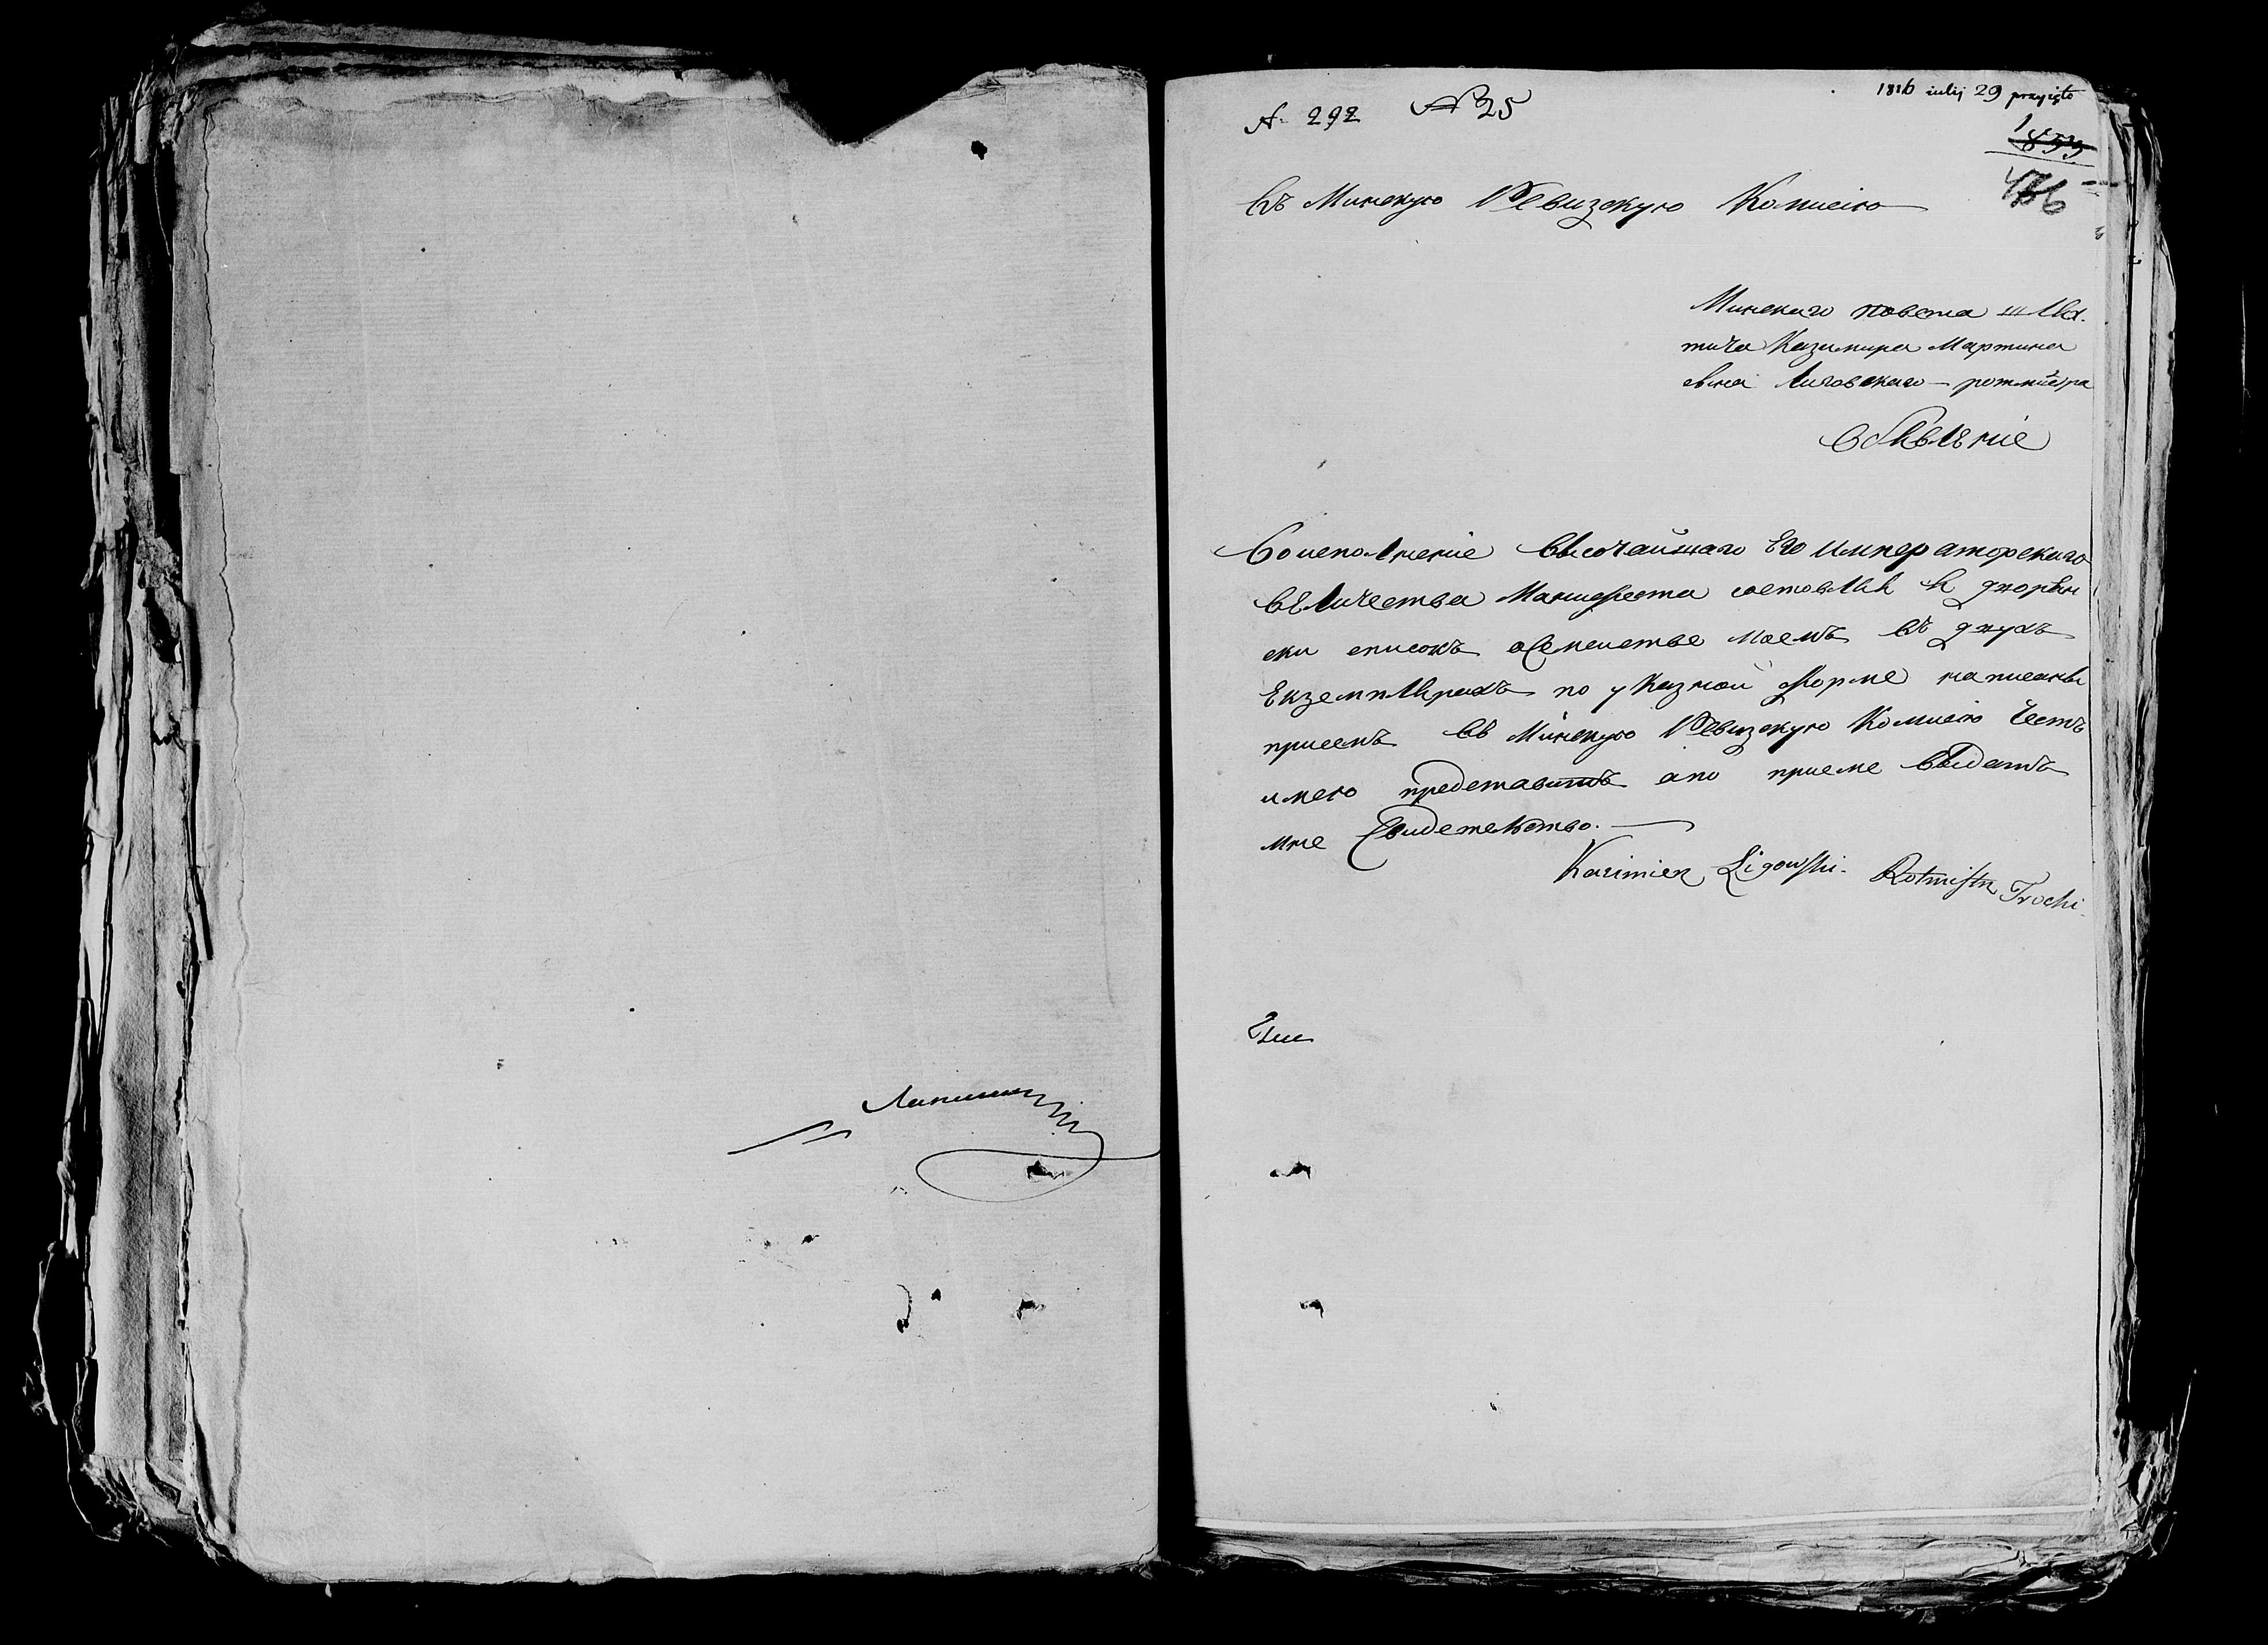 1816 iulij 29 przyięto
A. 292 № 25
1853
Въ Минскую Ревизскую Комисію
Минскаго повета шлях.
тича Казимира Мартина
сына Лиговскаго — ротмистра
Объявленіе
Воисполненіе Высочайшаго Его Императорскаго
Величества Манифеста составля я дворян
ски списокъ осемеистве моемъ въ двухъ
Екземплярахъ по указной форме написаны
присемъ въ Минскую Ревизскую Комисію честь
имею представить апо приеме выдать
мне Свидетельство.
Kazimierz Ligowski. Rotmistrz Trocki